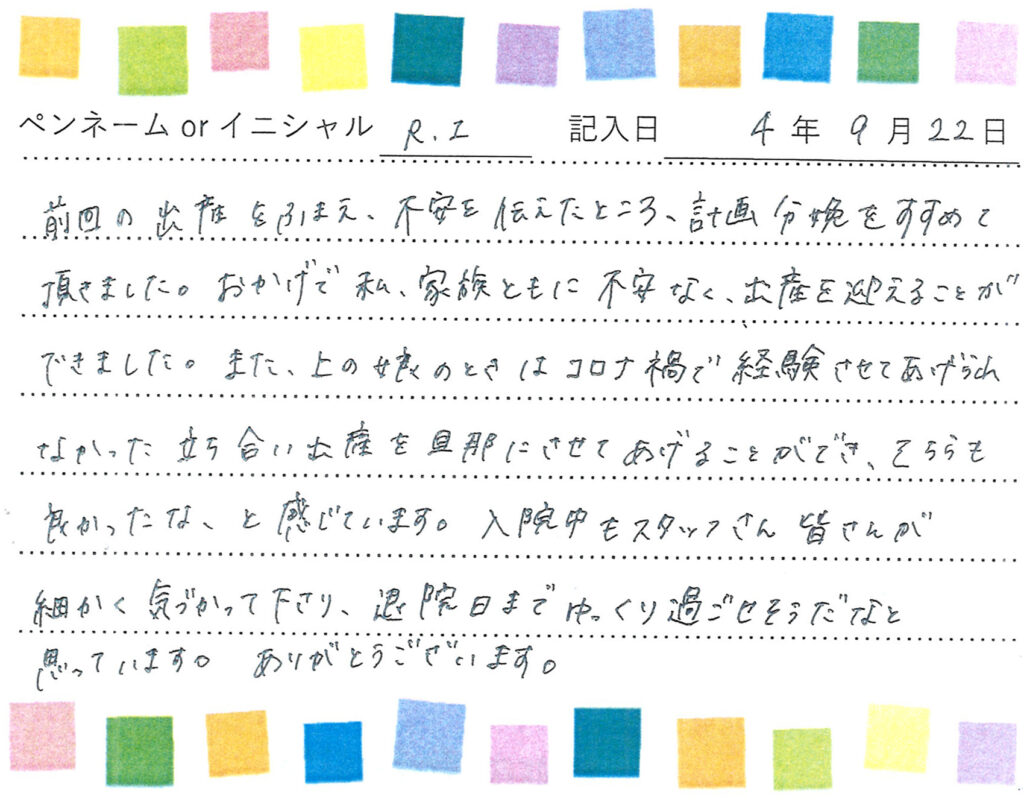 ペンネーム or イニシャル R.I 記入日 4年 9月22日
前回の出産をふまえ、不安を伝えたところ、計画分娩をすすめて
頂きました。おかげで私、家族ともに不安なく、出産を迎えることが
できました。また、上の娘のときはコロナ禍で経験させてあげられ
なかった立ち合い出産を旦那にさせてあげることができ、そちらも
良かったな、と感じています。入院中もスタッフさん皆さんが
細かく気づかって下さり、退院日までゆっくり過ごせそうだなと
思っています。ありがとうございます。